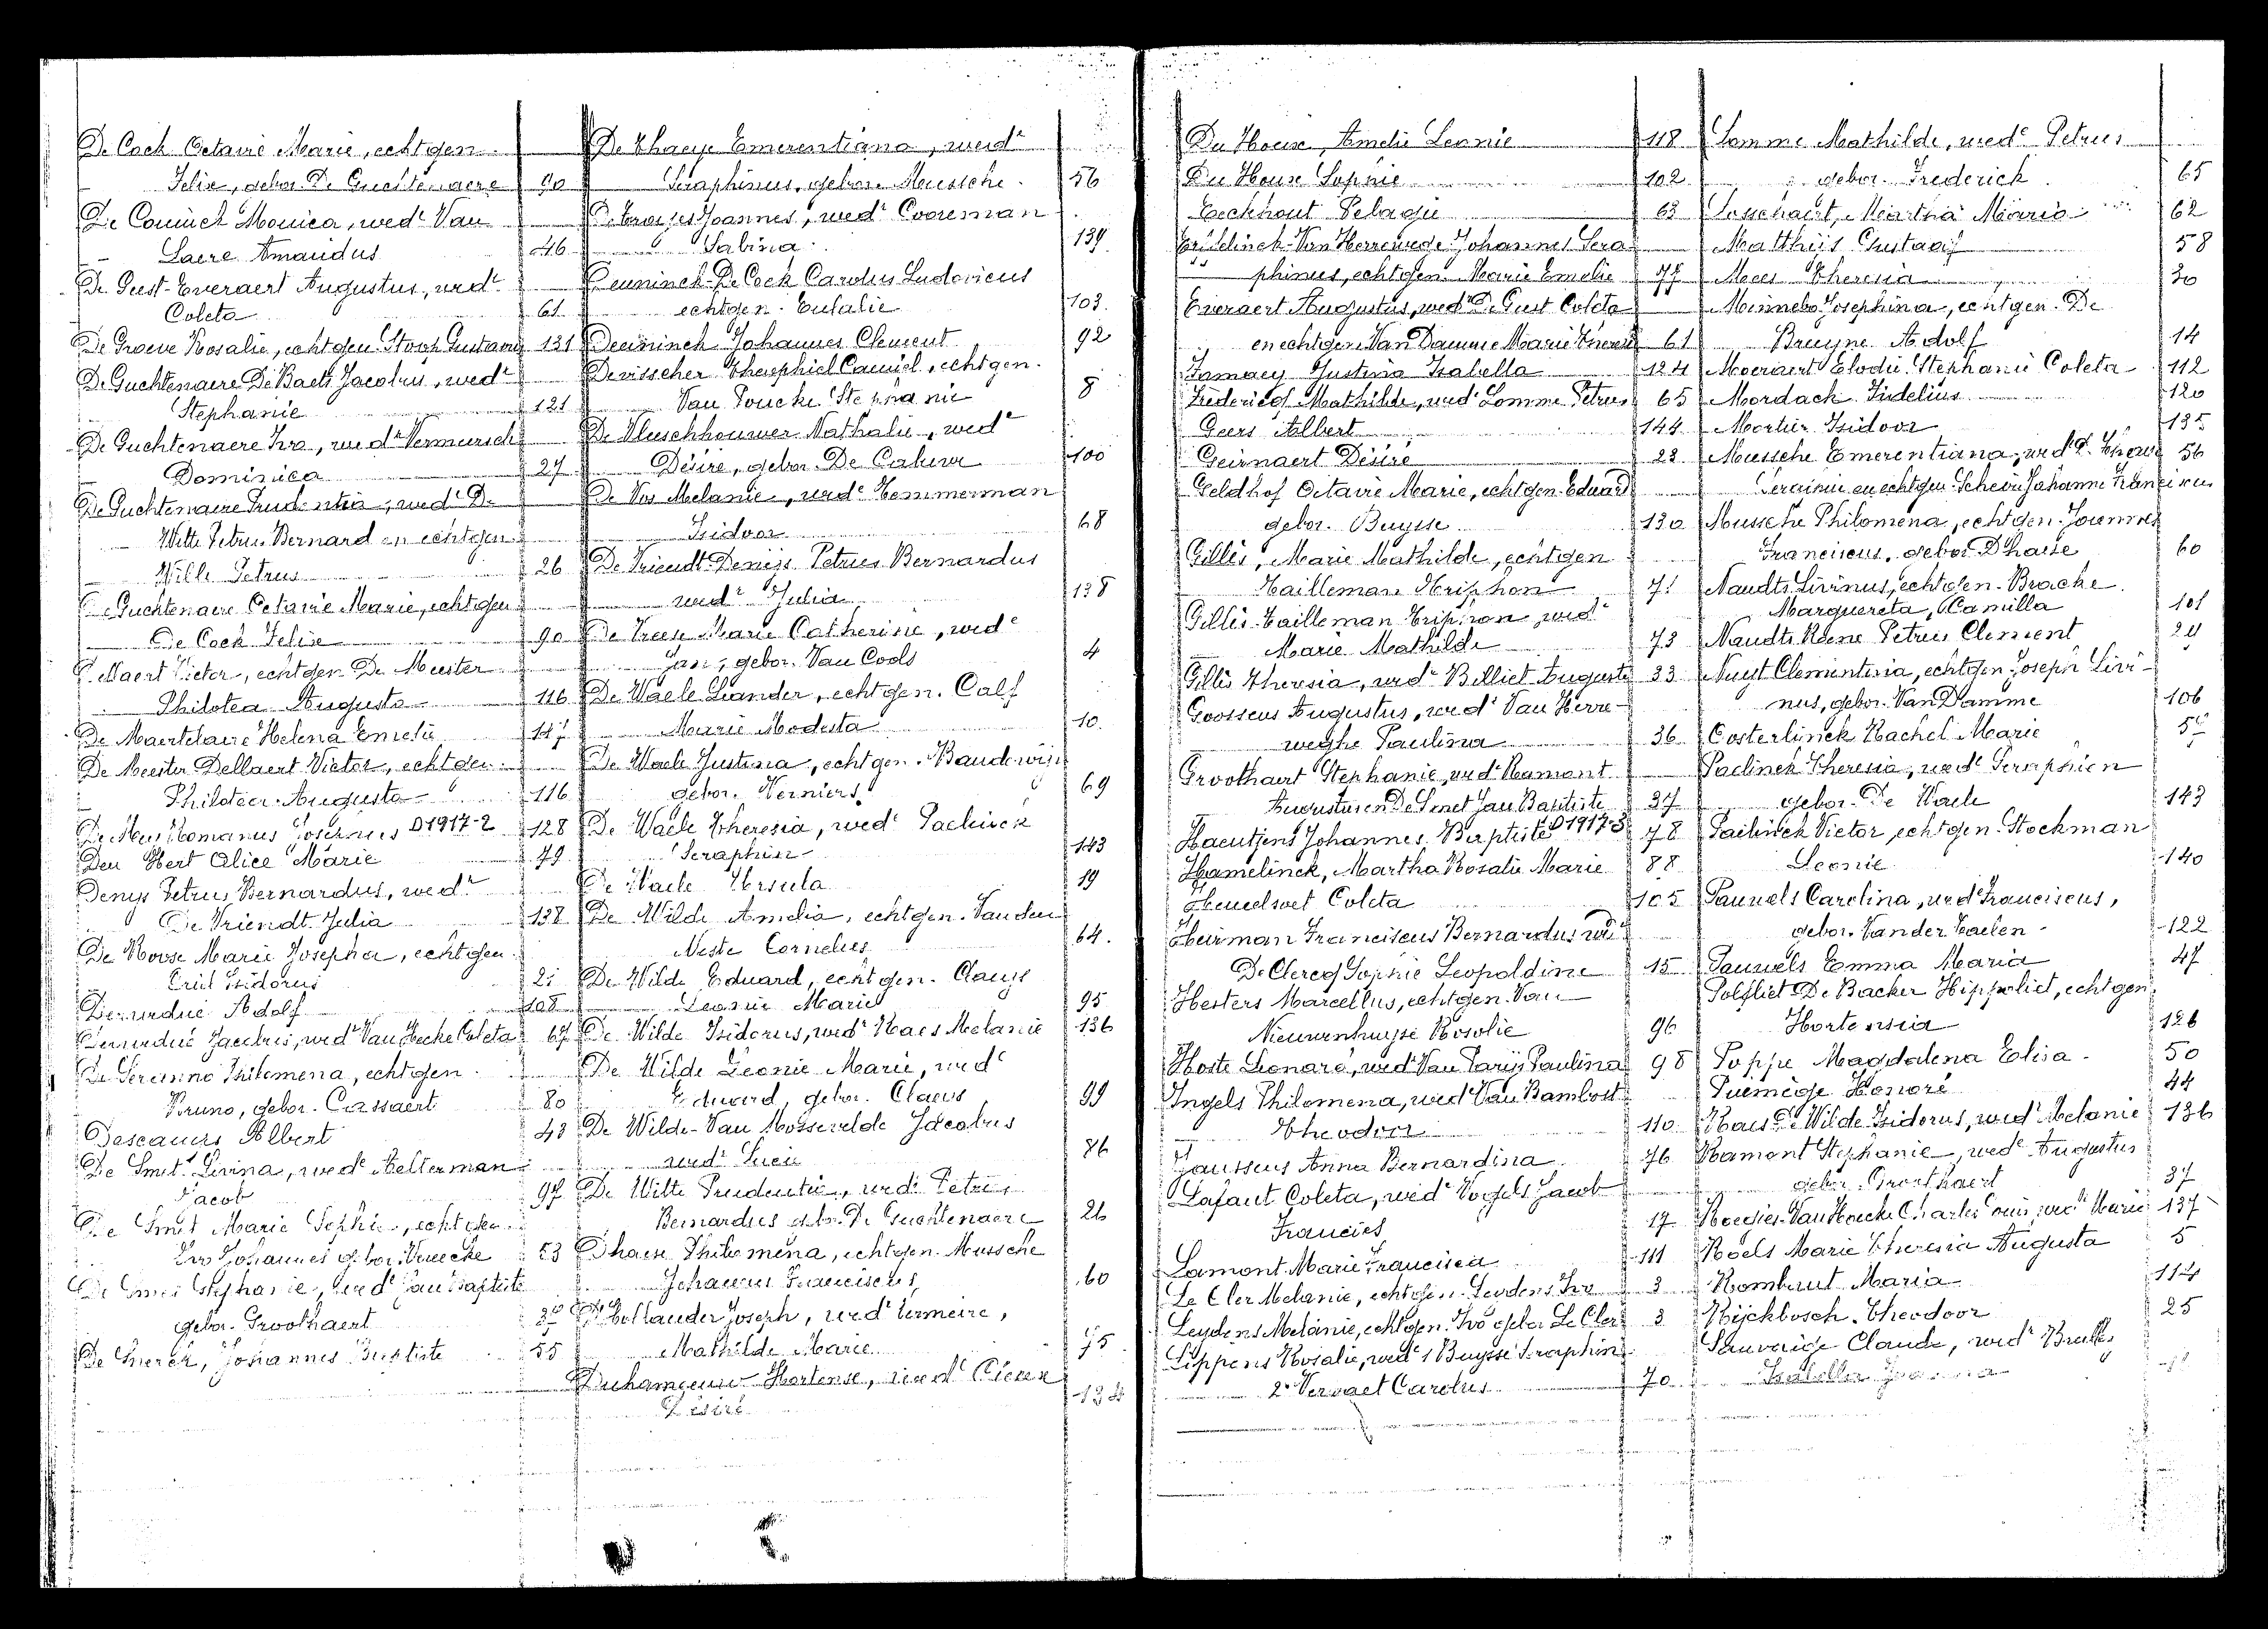 De Cock Octavie Marie, echtgen.
Felix, gebor. De Guchtenaere 90
De Couinck Monica, wedᵉ Van
Laere Amandus 46
De Geest-Everaert Augustus, wedʳ
Coleta 61
De Graeve Rosalie, echtgen. Stoop Gustaaf 131
De Guchtenaere De Baets Jacobus, wedʳ
Stephanie 121
De Guchtenaere Ivo, wedʳ Vermeersch
Dominica 27
De Guchtenaere Prudentia, wedᵉ De
Witte Petrus Bernard en echtgen.
Wille Petrus 26
De Guchtenaere Octavie Marie, echtgen
De Cock Felix 90
Dellaert Victor, echtgen. De Meester
Philotea Augusta 116
De Maertelaere Helena Emelie 147
De Meester Dellaert Victor, echtgen.
Philotea Augusta 116
De Mey Romanus Josephus D1917-2 128
Den Hert Alice Marie 79
Denys Petrus Bernardus, wedʳ
De Vriendt Julia 138
De Roose Marie Josepha, echtgen
Criel Isidorus 21
Derudué Adolf 108
Derudué Jacobus, wedʳ Van Hecke Coleta 67
De Seranno Philomena, echtgen.
Bruno, gebor. Cassaert 80
Descauers Albert 43
De Smet Livina, wedᵉ Aelterman
Jacob 97
De Smet Marie Sophie, echtgen
Ivo Johannes gebor. 53
De Smet Stephanie, wedᵉ Jan Baptiste
gebor. Groothaert 37
De Snerck, Johannes Baptiste 55
De Thaeye Emerentiana, wedᵉ
Seraphinus, gebor. Meussche. 56
Joannes, wedʳ Cooreman
Sabina. 139
Deuninck-De Cock Carolus Ludovicus
echtgen. Eulalie 103
Deuninck Johannes Clement 92
Devisscher Theophiel Camiel, echtgen.
Van Poucke Stephanie 8
De Vleeschhouwer Nathalie, wedᵉ
Désiré, gebor. De Caluwe 100
De Vos Melanie, wedᵉ Temmerman
Isidoor 68
De Vriendt-Denijs Petrus Bernardus
wedʳ Julia 138
De Vreese Marie Catherine, wedᵉ
Jan, gebor. Van Cools 4
De Waele Leander, echtgen. Calf
Marie Modesta 10
De Waele Justina, echtgen. Baudewijn
gebor. Verniers 69
De Waele Theresia, wedᵉ Paelinck
Seraphin 143
De Waele Ursula 19
De Wilde Amelia, echtgen. Van den
Neste Cornelius 64.
De Wilde Eduard, echtgen. Claeys
Leonie Marie 95
De Wilde Isidorus, wedʳ Raes Melanie 136
De Wilde Leonie Marie, wedᵉ
Eduard, gebor. Claeys 99
De Wilde-Van Mossevelde Jacobus
wedʳ Lucie 86
De Witte Prudentie, wedᵉ Petrus
Bernardus gebor. De Guchtenaere 26
Dhaese Philomena, echtgen. Mussche
Johannes Franciscus 60
D'Hollander Joseph, wedʳ Vermeire,
Mathilde Marie 75
Duhameeuw Hortense, wedᵉ
Désiré 134
Du Houx, Amelie Leonie 118
Du Houx Sophie 102
Eeckhout Pelagie 63
Van Herrewege Johannes Sera-
phinus, echtgen. Marie Emelie 77
Everaert Augustus, wedʳ De Geest Coleta
en echtgen. Van Damme Marie Theresia 61
Famaey Justina Isabella 124
Frederick Mathilde, wedᵉ Lomme Petrus 65
Geers Albert 144
Geirnaert Désiré 23
Geldhof Octavie Marie, echtgen. Eduard
gebor. Buysse 130
Gillis, Marie Mathilde, echtgen
Tailleman Triphon 71
Gillis-Tailleman Triphon, wedʳ
Marie Mathilde 73
Gillis Theresia, wedᵉ Billiet Auguste 33
Goossens Augustus, wedʳ Van Herre-
weghe Paulina 36
Groothaert Stephanie, wedᵉ Ramont
Augustus en De Smet Jan Baptiste 37
Haentjens Johannes Baptiste D1917-3 78
Hamelinck, Martha Rosalie Marie 88
Heuelswet Coleta 105
Heirman Franciscus Bernardus wedʳ
De Clercq Sophie Leopoldine 15
Hesters Marcellus, echtgen. Van
Nieuwenhuyse Rosalie 96
Hoste Leonard, wedʳ Van Parijs Paulina 98
Ingels Philomena, wedᵉ Van Bambost
Theodoor 110
Janssens Anna Bernardina 76
Lafaut Coleta, wedᵉ Vogels Jacob
Francies 17
Lamont Marie Francisca 111
Le Cler Melanie, echtgen. Leydens Ivo 3
Leydens Melanie, echtgen. Ivo gebor. Le Cler 3
Lippens Rosalie, wedᵉ 1 Buysse Seraphin
2° Vervaet Carolus 70
Lomme Mathilde, wedᵉ Petrus
gebor. Frederick 65
Lasschaert, Martha Maria 62
Matthijs Gustaaf 58
Mees Theresia 30
Minnebo Josephina, echtgen. De
Bruyne Adolf 14
Moeraert Elodie Stephanie Coleta 112
Mordack Fidelius 120
Mortier Isidoor 135
Meussche Emerentiana, wedᵉ 56
en echtgen. Johannes Franciscus
Mussche Philomena, echtgen. Joannes
Franciscus, gebor. Dhaese 60
Naudts Livinus, echtgen. Bracke
Marguereta, Camilla 101
Naudts Rene Petrus Clement 24
Nuyt Clementina, echtgen. Joseph Livi-
nus, gebor. Van Damme 106
Oosterlinck Rachel Marie
Paelinck Theresia, wedᵉ Seraphien
gebor. De Waele 143
Paelinck Victor, echtgen. Stockman
Leonie 140
Pauwels Carolina, wedᵉ Franciscus,
gebor. Vander Haelen 122
Pauwels Emma Maria 47
Polfliet-De Backer Hippoliet, echtgen.
Hortensia 126
Poppe Magdalena Elisa 50
Puemège Honoré 44
Raes-De Wilde Isidorus, wedʳ Melanie 136
Ramont Stephanie, wedᵉ Augustus
gebor. Groothaert 37
Roegies-Van Hoecke Charles Louis, wedʳ Marie 137
Roels Marie Theresia Augusta 5
Rombaut Maria 114
Rijckbosch Theodoor 25
Sauvaige Claude, wedʳ
Isabella Joanna